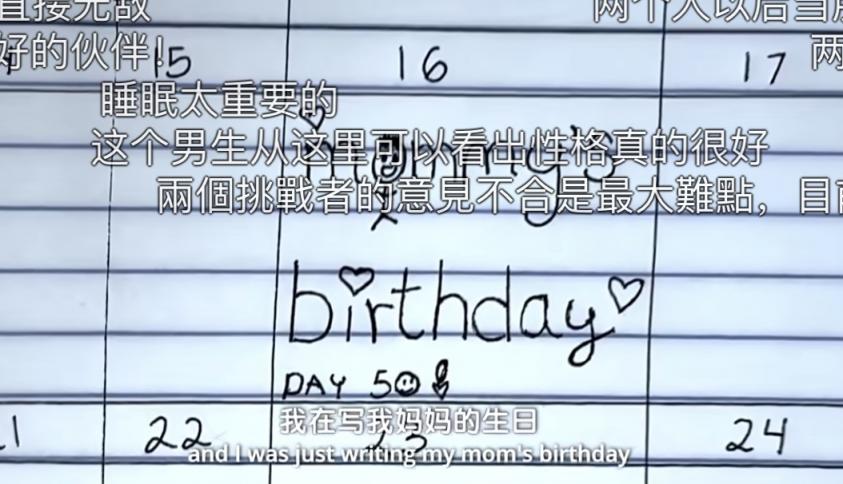 直接无敌
两个人以后当朋
好的伙伴！
两
15
16
17
睡眠太重要的
这个男生从这里可以看出性格真的很好
mommy's
兩個挑戰者的意見不合是最大難點，目前
birthday
DAY 50
我在写我妈妈的生日
1
22
23
24
and I was just writing my mom's birthday